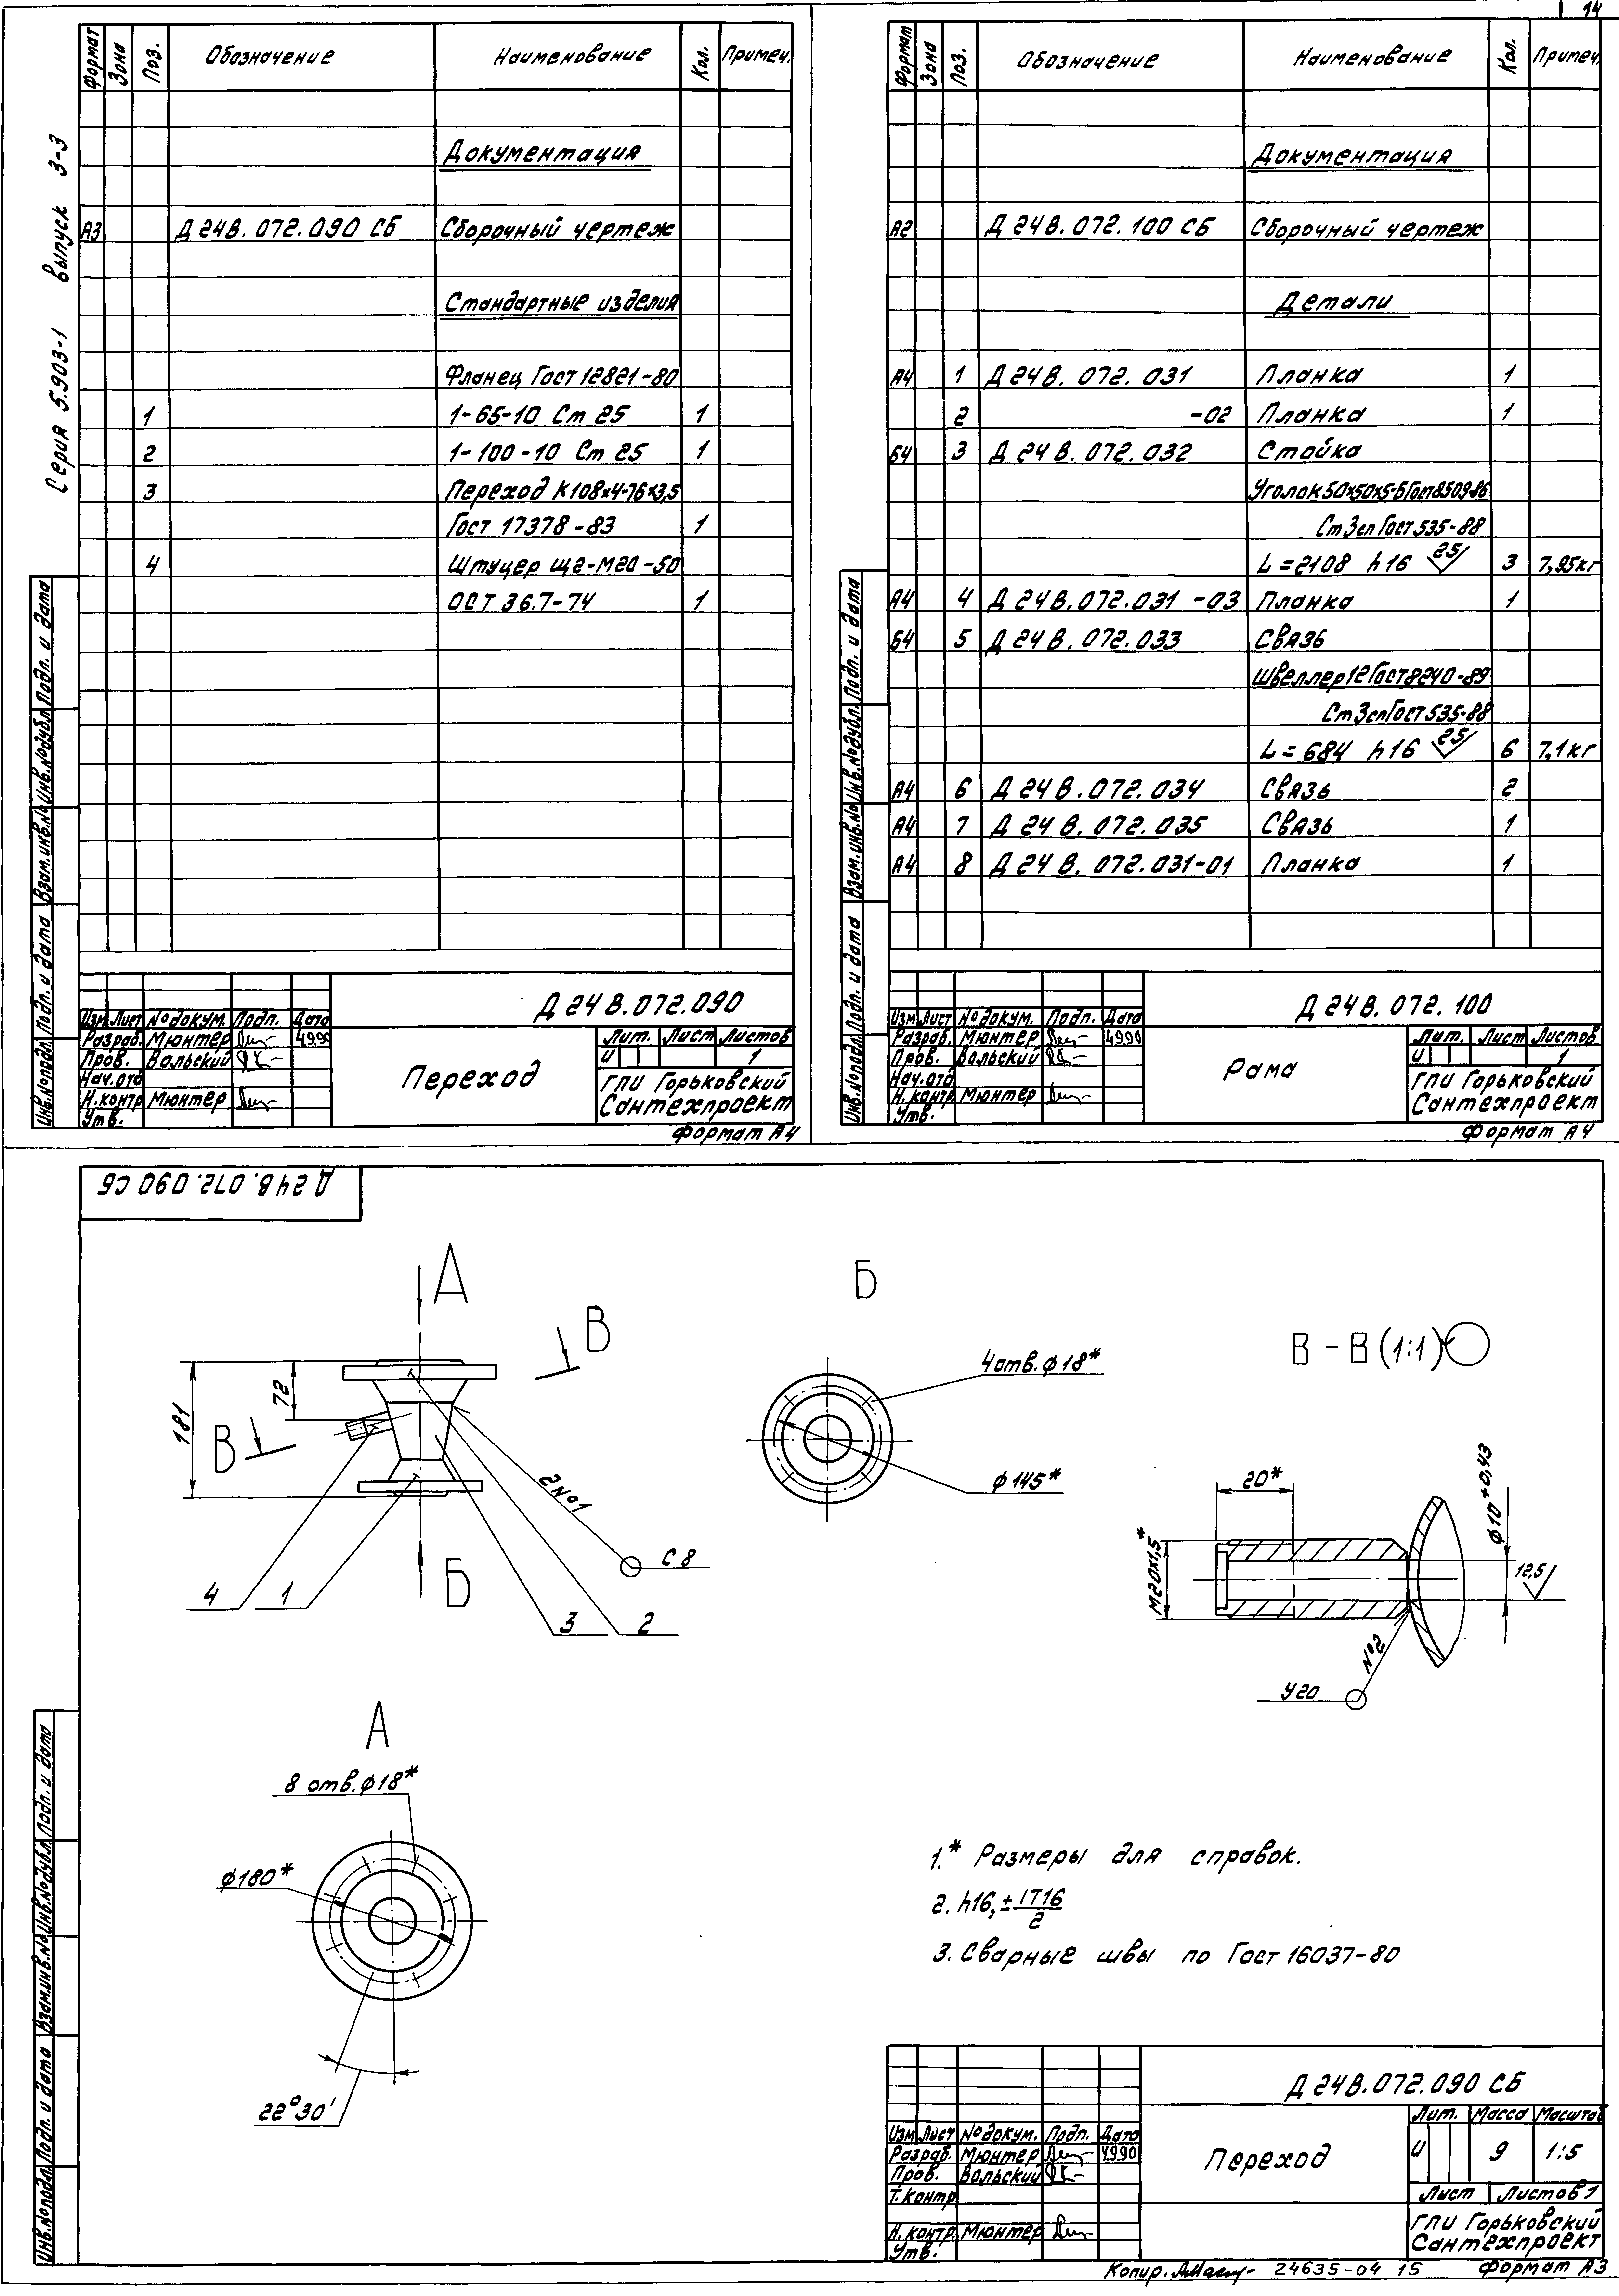 14
Серия 5.903-1 выпуск 3-3
Формат Зона Поз. Обозначение Наименование Кол. Примеч.
Документация
А3 Д 24В. 072. 090 СБ Сборочный чертеж
Стандартные изделия
Фланец Гост 12821-80
1 1-65-10 Ст 25 1
2 1-100-10 Ст 25 1
3 Переход К108х4-76х3,5
Гост 17378-83 1
4 Штуцер Щ2-М20-50
ОСТ 36.7-74 1
Инв.№подл. Подп. и дата Взам.инв.№ Инв.№дубл. Подп. и дата
Д 24 В. 072. 090
Изм Лист № докум. Подп. Дата
Разраб. Мюнтер 4.9.90
Пров. Вольский
Нач.отд
Н.контр Мюнтер
Утв.
Переход
Лит. Лист Листов
И 1
ГПИ Горьковский
Сантехпроект
Формат А4
Формат Зона Поз. Обозначение Наименование Кол. Примеч.
Документация
А2 Д 24В. 072. 100 СБ Сборочный чертеж
Детали
А4 1 Д 24 В. 072. 031 Планка 1
2 -02 Планка 1
Б4 3 Д 24 В. 072. 032 Стойка
Уголок 50х50х5-Б Гост 8509-86
Ст 3сп Гост 535-88
L = 2108 h16 25 3 7,95кг
А4 4 Д 24 В. 072. 031 -03 Планка 1
Б4 5 Д 24 В. 072. 033 Связь
Швеллер 12 Гост 8240-89
Ст 3сп Гост 535-88
L = 684 h16 25 6 7,1кг
А4 6 Д 24 В. 072. 034 Связь 2
А4 7 Д 24 В. 072. 035 Связь 1
А4 8 Д 24 В. 072. 031-01 Планка 1
Инв.№подл. Подп. и дата Взам.инв.№ Инв.№дубл. Подп. и дата
Д 24 В. 072. 100
Изм Лист № докум. Подп. Дата
Разраб. Мюнтер 4.9.90
Пров. Вольский
Нач.отд
Н.контр Мюнтер
Утв.
Рама
Лит. Лист Листов
И 1
ГПИ Горьковский
Сантехпроект
Формат А4
Д 24 В. 072. 090 СБ
А
В
72
181
В
2 №1
С 8
4 1
Б
3 2
Б
4 отв. ф18*
ф 145*
В - В (1:1)
20*
М20х1,5*
ф10 +0,43
12,5
№2
У20
А
8 отв. ф18*
ф180*
22°30'
1.* Размеры для справок.
2. h16, ± IT16/2
3. Сварные швы по Гост 16037-80
Инв.№подл. Подп. и дата Взам.инв.№ Инв.№дубл. Подп. и дата
Д 24 В. 072. 090 СБ
Изм Лист № докум. Подп. Дата
Разраб. Мюнтер 4.9.90
Пров. Вольский
Т. контр
Н. контр. Мюнтер
Утв.
Переход
Лит. Масса Масштаб
И 9 1:5
Лист Листов 1
ГПИ Горьковский
Сантехпроект
Копир. 24635-04 15 Формат А3